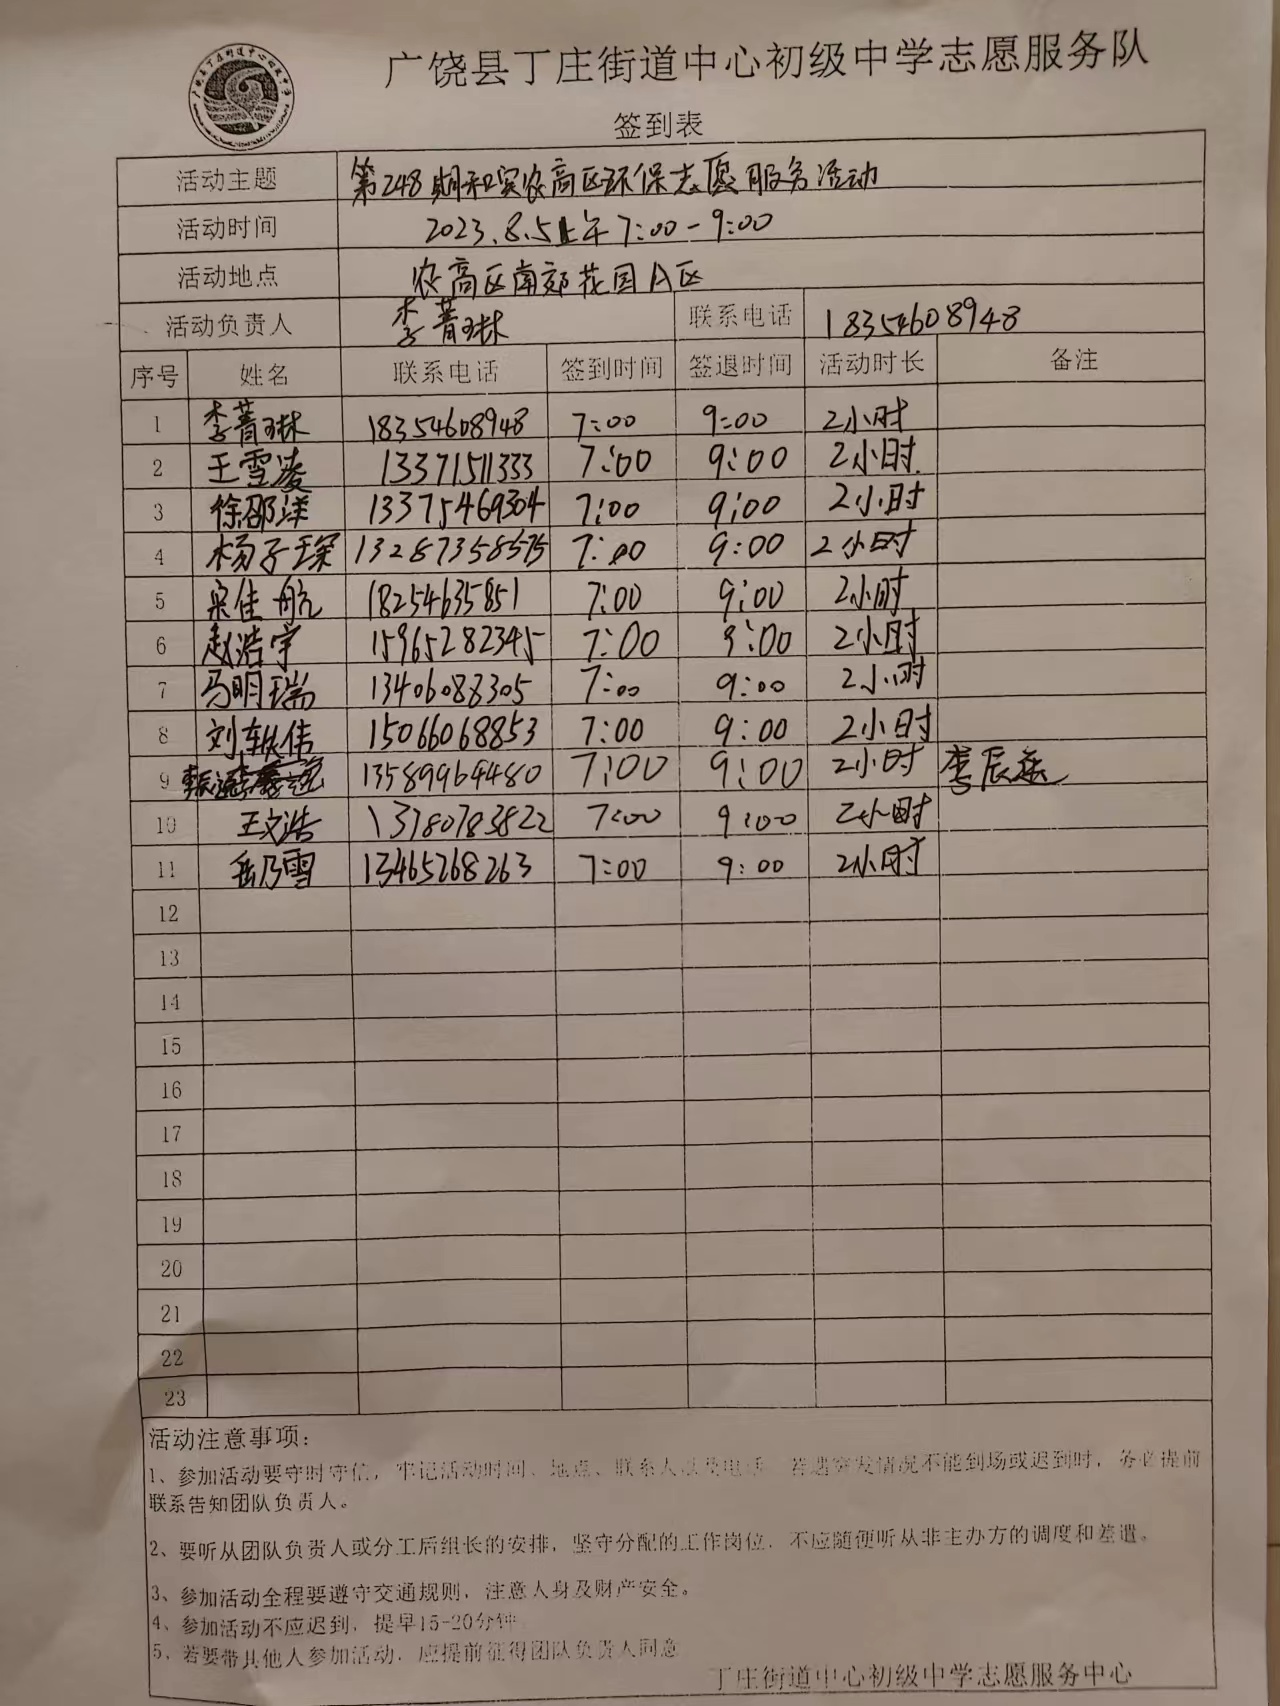 广饶县丁庄街道中心初级中学志愿服务队
签到表
活动主题 第248期和实农高区环保志愿服务活动
活动时间 2023.8.5上午7:00-9:00
活动地点 农高区南郊花园A区
活动负责人 李菁琳 联系电话 18354608948
序号 姓名 联系电话 签到时间 签退时间 活动时长 备注
1 李菁琳 18354608948 7:00 9:00 2小时
2 王雪凌 13371511333 7:00 9:00 2小时
3 徐邵洋 13375469304 7:00 9:00 2小时
4 杨子琛 13287358575 7:00 9:00 2小时
5 宋佳航 18254635851 7:00 9:00 2小时
6 赵浩宇 15965282345 7:00 9:00 2小时
7 马明瑞 13406088305 7:00 9:00 2小时
8 刘轶伟 15066068853 7:00 9:00 2小时
9 13589964480 7:00 9:00 2小时 李辰逸
10 王文浩 13780783822 7:00 9:00 2小时
11 岳乃雪 13465268263 7:00 9:00 2小时
12
13
14
15
16
17
18
19
20
21
22
23
活动注意事项：
1、参加活动要守时守信，牢记活动时间、地点、联系人以及电话，若遇突发情况不能到场或迟到时，务必提前
联系告知团队负责人。
2、要听从团队负责人或分工后组长的安排，坚守分配的工作岗位，不应随便听从非主办方的调度和差遣。
3、参加活动全程要遵守交通规则，注意人身及财产安全。
4、参加活动不应迟到，提早15-20分钟
5、若要带其他人参加活动，应提前征得团队负责人同意
丁庄街道中心初级中学志愿服务中心